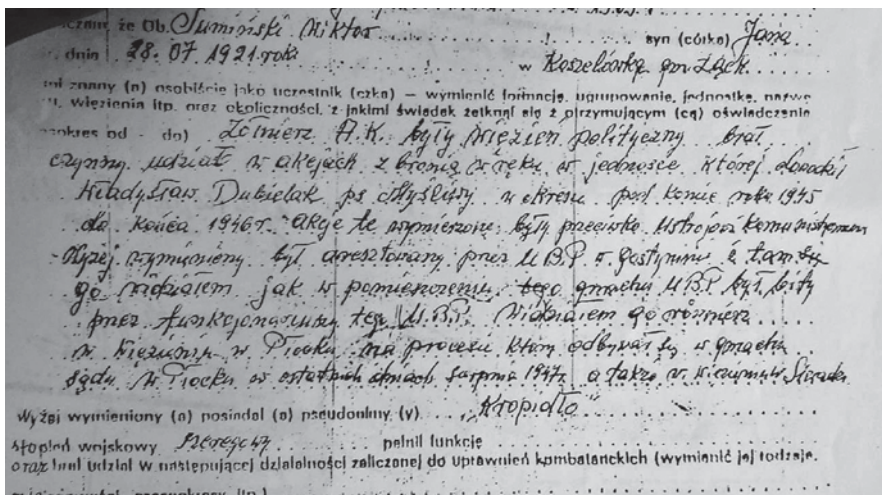 że Ob. Sumiński Wiktor syn (córka) Jana
dnia 28.07 1921 roku w Koszelówka gm. Łąck
znany (a) osobiście jako uczestnik (czka) — wymienić formację, ugrupowanie, jednostkę, nazwę
więzienia itp. oraz okoliczności, z jakimi świadek zetknął się z otrzymującym (cą) oświadczenie
okres od - do) Żołnierz A.K. były więzień polityczny brał
czynny udział w akcjach z bronią w ręku w jednosce której dowodził
Władysław Dubielak ps Myśliwy w okresu pod koniec roku 1945
do końca 1946 r. akcje te wymierzone były przeciwko Ustrojowi Komunistycznemu
Wyżej wymieniony był aresztowany przez U.B.P w Gostyninie i tam się
go widziałem jak w pomieszczeniu tego gmachu U.B.P był bity
przez funkcjonariuszy tego U.B.P. Widziałem go również
w Więzieniu w Płocku na procesu który odbywał się w gmachu
sądu w Płocku w ostatnich dniach sierpnia 1947r. a także w Więzieniu w Sieradzu
Wyżej wymieniony (a) posiadał (a) pseudonimy (y) "Kropidło"
stopień wojskowy Szeregowy pełnił funkcję
oraz brał udział w następującej działalności zaliczonej do uprawnień kombatanckich (wymienić jej rodzaje,